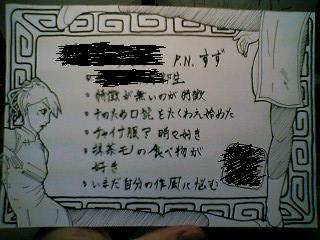 P.N. すず
生
・特徴が無いのが特徴
・そのため日記をたくわえ始めた
・チャイナ服ア 時々好き
・抹茶モノの食べ物が
好き
・いまだ自分の作風に悩む